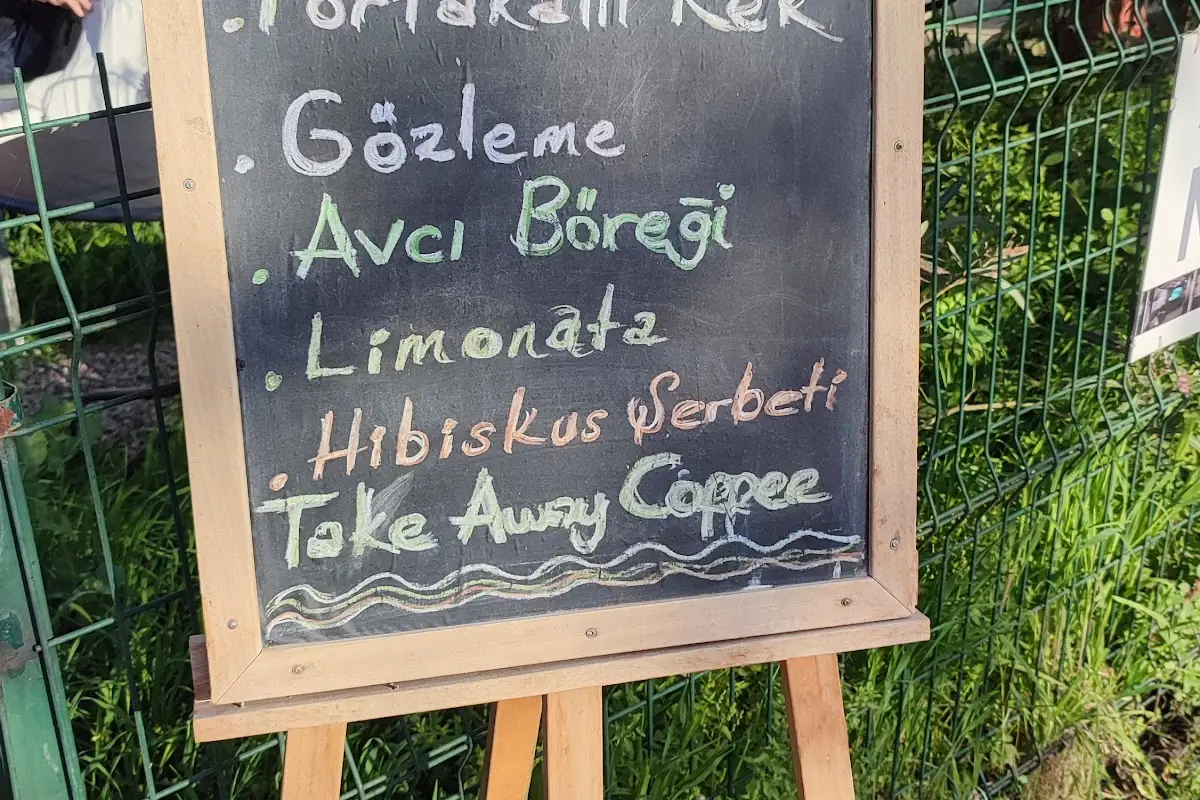 . Portakallı Kek
. Gözleme
. Avcı Böreği
. Limonata
. Hibiskus Şerbeti
Take Away Coppee